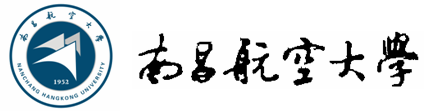 南昌航空大學
NANCHANG HANGKONG UNIVERSITY
1952
南昌航空大學